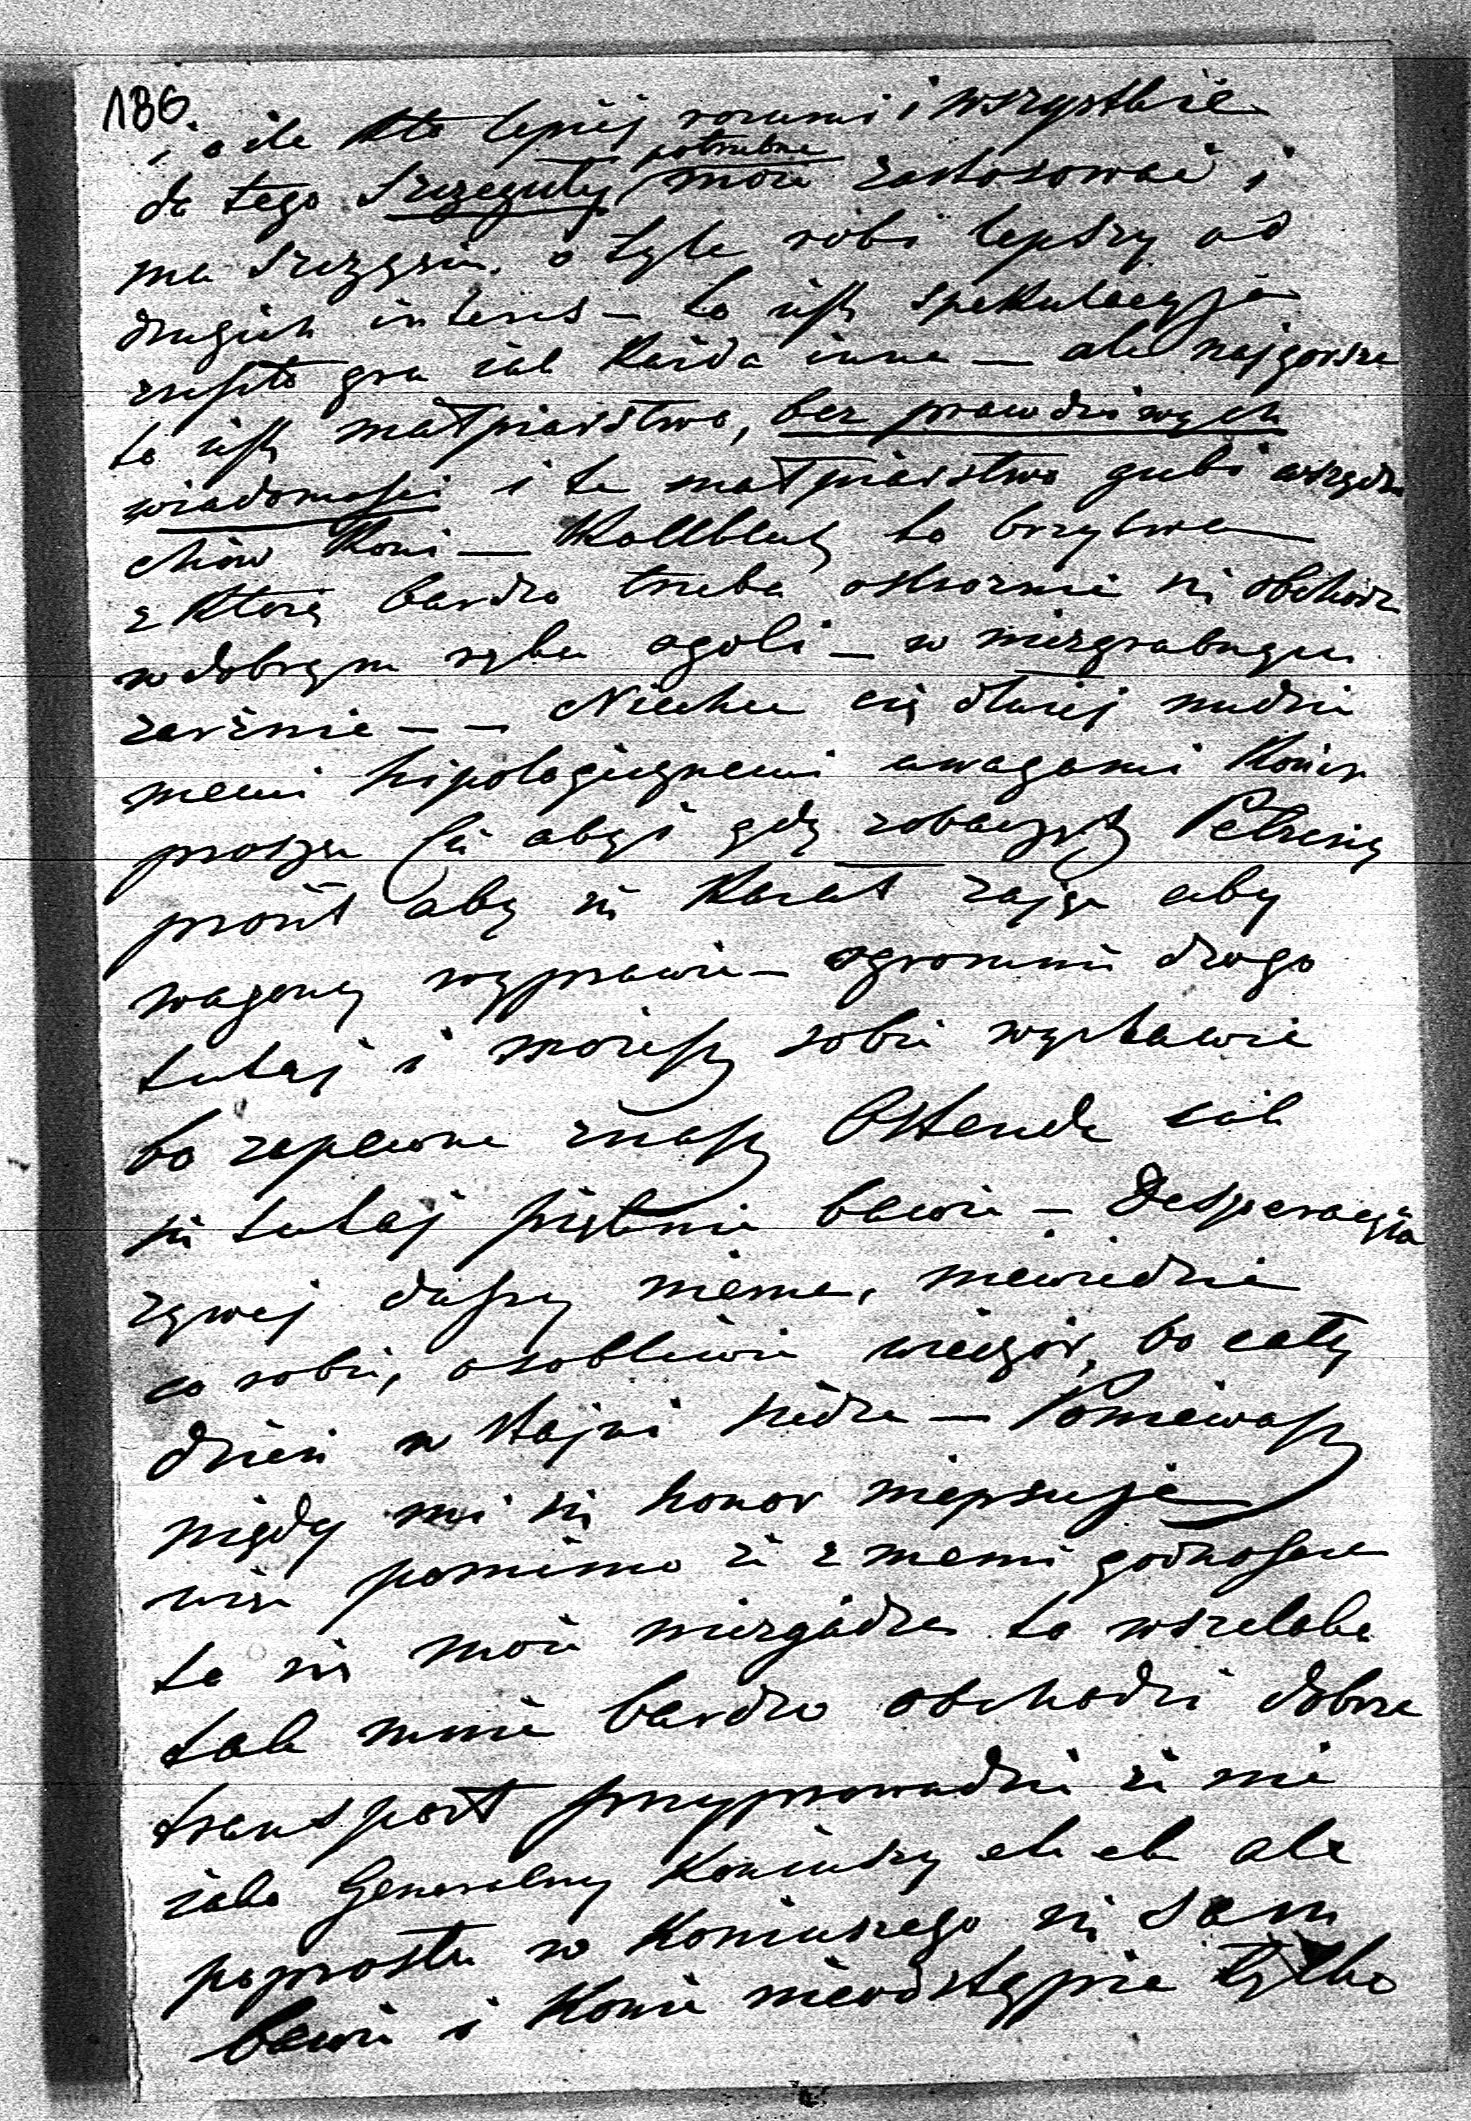 186.
i o ile kto lepiej rozumi i wszystkie
potrzebne
do tego szczeguły może zastosować i
ma szczęście o tyle robi lepszy od
drugich interes – to jest spekulacyja
zresztą gra jak każda inna – ale najgorsze
to jest małpiarstwo, bez prawdziwych
wiadomości i te małpiarstwo gubi wszędzie
chów koni – Kallbluty to brzytwa
z którą bardzo trzeba ostrożnie się obchodz
w dobrym ręku ogoli – w niezgrabnym
zarżnie – – Niechcę cię dłużej nudzić
memi hipologicznemi uwagami
proszę Cię abyś gdy zobaczysz
prosił aby się kazał zająć aby
wagony wyprawić – ogromnie drogo
tutaj i możesz sobie wystawić
bo zapewne znasz Ostende jak
się tutaj pięknie bawię – Desperacyja
żywej duszy niema, niewiedzieć
co robić, osobliwie wieczór, bo cały
dzień w stajni siedzę – Ponieważ
nigdy mi się honor niepsuje
więc pomimo że z memi godnościa
to się może niezgadza to wszelako
tak mnie bardzo obchodzi dobrze
transport przyprowadzić że nie
jako Generalny Koniuszy etc etc ale
poprostu w koniuszego się sam
bawię i konie nieodstępnie tylko